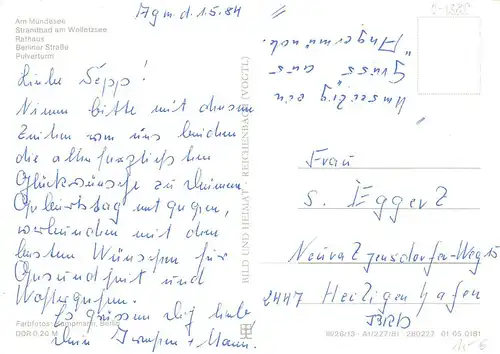 Agm.d. 1.5.84
Am Mündesee
Strandbad am Wolletzsee
Rathaus
Berliner Straße
Pulverturm
Liebe Sepp!
Nimm bitte mit diesen
Zeilen von uns beiden
die allerherzlichsten
Glückwünsche zu Deinem
Geburtstag entgegen,
verbunden mit den
besten Wünschen für
Gesundheit und
Wohlergehen.
Es grüssen Dich liebe
Dein + Mann.
Farbfotos: Kampmann, Berlin
DDR 0,20 M
BILD UND HEIMAT REICHENBACH (VOGTL)
Unser
ein
Gruss aus
"Angermünde.
Frau
S. Eggerz
-Weg 15
2447 Heiligenhafen
BRD
IV/26/13 A1/227/81 280227 01 05 0181